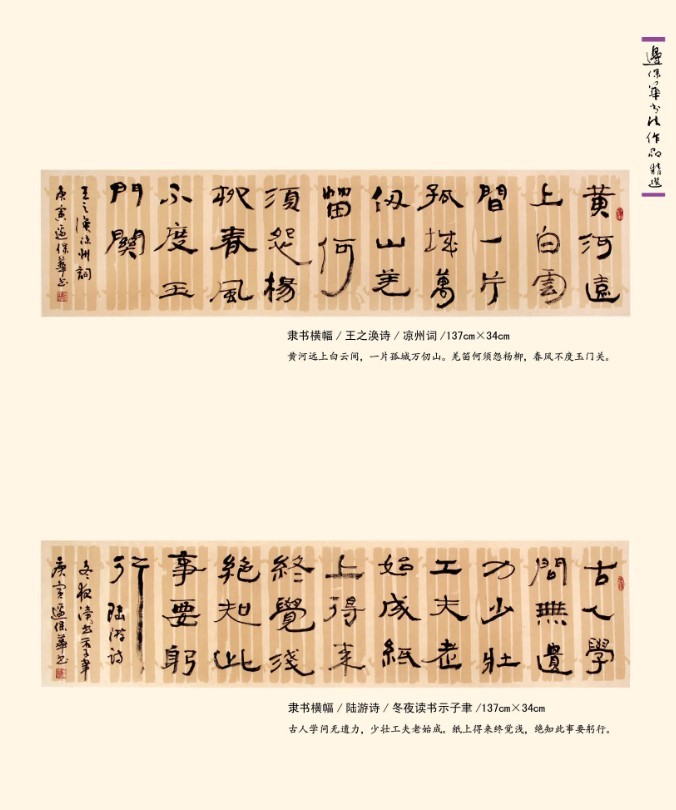 邊保華书法作品精選
黄河遠
上白雲
間一片
孤城萬
仞山羌
笛何
須怨楊
柳春風
不度玉
門關
王之渙涼州詞
庚寅邊保華书
隶书横幅 / 王之涣诗 / 凉州词 /137cm×34cm
黄河远上白云间，一片孤城万仞山。羌笛何须怨杨柳，春风不度玉门关。
古人學
問無遺
力少壯
工夫老
始成紙
上得来
終覺淺
絶知此
事要躬
行 陆游诗
冬夜读书示子聿
庚寅邊保華书
隶书横幅 / 陆游诗 / 冬夜读书示子聿 /137cm×34cm
古人学问无遗力，少壮工夫老始成。纸上得来终觉浅，绝知此事要躬行。